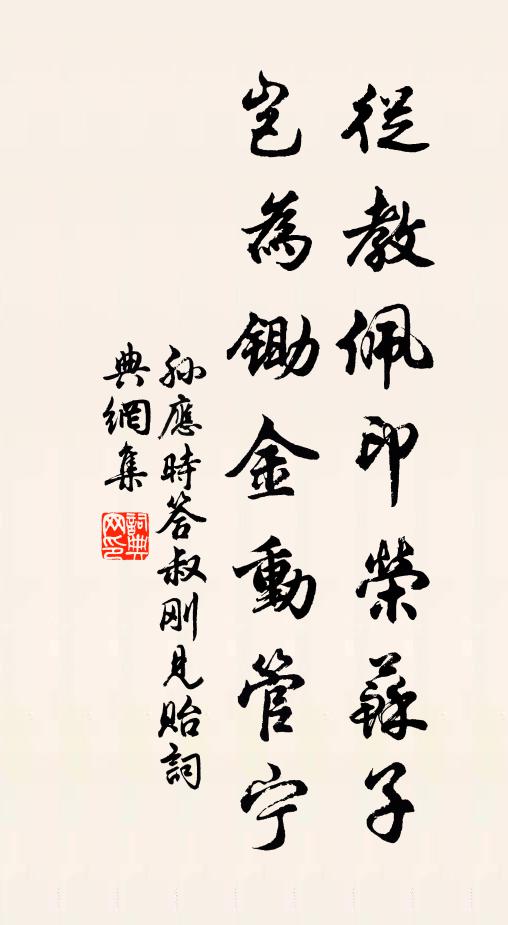 從教佩印榮蘇子
豈為鋤金動管宁
孙應時答叔刚見貽詞
典網集
詞典网印